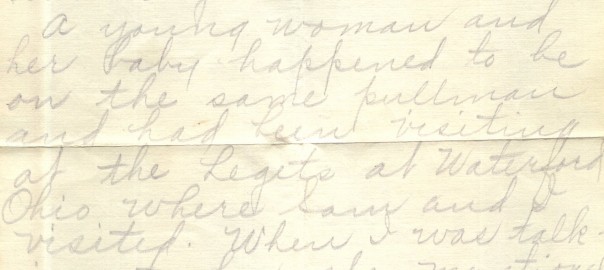 A young woman and
her baby happened to be
on the same pullman
and had been visiting
at the Legits at Waterford
Ohio where Sam and I
visited. When I was talk-
she mentioned